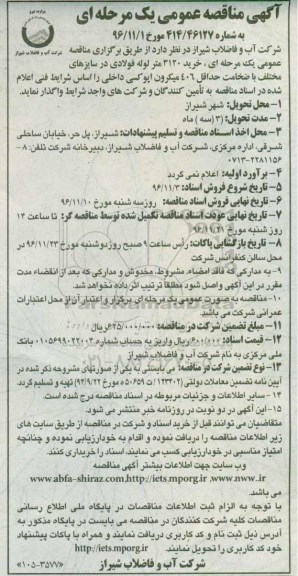 آگهی مناقصه عمومی یک مرحله ای
به شماره ۴۱۴/۴۶۱۲۷ مورخ ۹۶/۱۱/۱
شرکت آب و فاضلاب شیراز
شرکت آب و فاضلاب شیراز در نظر دارد از طریق برگزاری مناقصه
عمومی یک مرحله ای، خرید ۳۱۲۰ متر لوله فولادی در سایزهای
مختلف با ضخامت حداقل ۴۰۶ میکرون اپوکسی داخلی را اساس شرایط فنی اعلام
شده در اسناد مناقصه به تأمین کنندگان و شرکت های واجد شرایط واگذار نماید.
۱- محل تحویل: شهر شیراز
۲- مدت تحویل: (۳ سه) ماه
۳- محل اخذ اسناد مناقصه و تسلیم پیشنهادات: شیراز، پل حر، خیابان ساحلی
شرقی، اداره مرکزی، شرکت آب و فاضلاب شیراز، دبیرخانه شرکت تلفن: ۸-
۰۷۱۳-۲۲۸۱۱۵۶
۴- برآورد اولیه: اعلام نمی گردد
۵- تاریخ شروع فروش اسناد: ۹۶/۱۱/۳
۶- تاریخ نهایی فروش اسناد مناقصه: روز سه شنبه مورخ ۹۶/۱۱/۱۰
۷- تاریخ نهایی عودت اسناد مناقصه تکمیل شده توسط مناقصه گر: تا ساعت ۱۴
روز شنبه مورخ ۹۶/۱۱/۲۱
۸- تاریخ بازگشایی پاکات: راس ساعت ۹ صبح روز دوشنبه مورخ ۹۶/۱۱/۲۳ در
محل سالن کنفرانس شرکت
۹- به مدارکی که فاقد امضاء، مشروط، مخدوش و مدارکی که بعد از انقضاء مدت
مقرر در این آگهی واصل شود مطلقا ترتیب اثر داده نخواهد شد.
۱۰- مناقصه به صورت عمومی یک مرحله ای برگزار و اعتبار آن از محل اعتبارات
عمرانی شرکت می باشد.
۱۱- مبلغ تضمین شرکت در مناقصه: ریال
۱۲- قیمت اسناد: ریال واریز به حساب شماره بانک
ملی مرکزی به نام شرکت آب و فاضلاب شیراز
۱۳- نوع تضمین شرکت در مناقصه: می بایستی به یکی از صورتهای مشروحه ذکر شده در
آیین نامه تضمین معاملات دولتی (۱۲۳۴۰۲/ت ۵۰۶۵۹ ه مورخ ۹۴/۹/۲۲) تهیه و تسلیم گردد.
۱۴- سایر اطلاعات و جزئیات مربوطه در اسناد مناقصه درج شده است.
۱۵- این آگهی در دو نوبت در روزنامه خبر منتشر می شود.
متقاضیان می توانند قبل از خرید اسناد و شرکت در مناقصه از طریق سایت های
زیر اطلاعات مناقصه را دریافت نموده و اقدام به خودارزیابی نموده و چنانچه
امتیاز مناسبی در خودارزیابی کسب می نمایند، اسناد را خریداری کنند.
وب سایت جهت اطلاعات بیشتر آگهی مناقصه
www.abfa-shiraz.com،http://iets.mporg.ir ،www.nww.ir
می باشد.
با توجه به الزام ثبت اطلاعات مناقصات در پایگاه ملی اطلاع رسانی
مناقصات کلیه شرکت کنندگان در مناقصه می بایست در پایگاه مذکور به
آدرس ذیل ثبت نام و کد کاربری دریافت نمایند و همراه با پاکات پیشنهاد
خود کد کاربری را تحویل نمایند. http://iets.mporg.ir
شرکت آب و فاضلاب شیراز
«۱۰۵-۳۵۷۷»